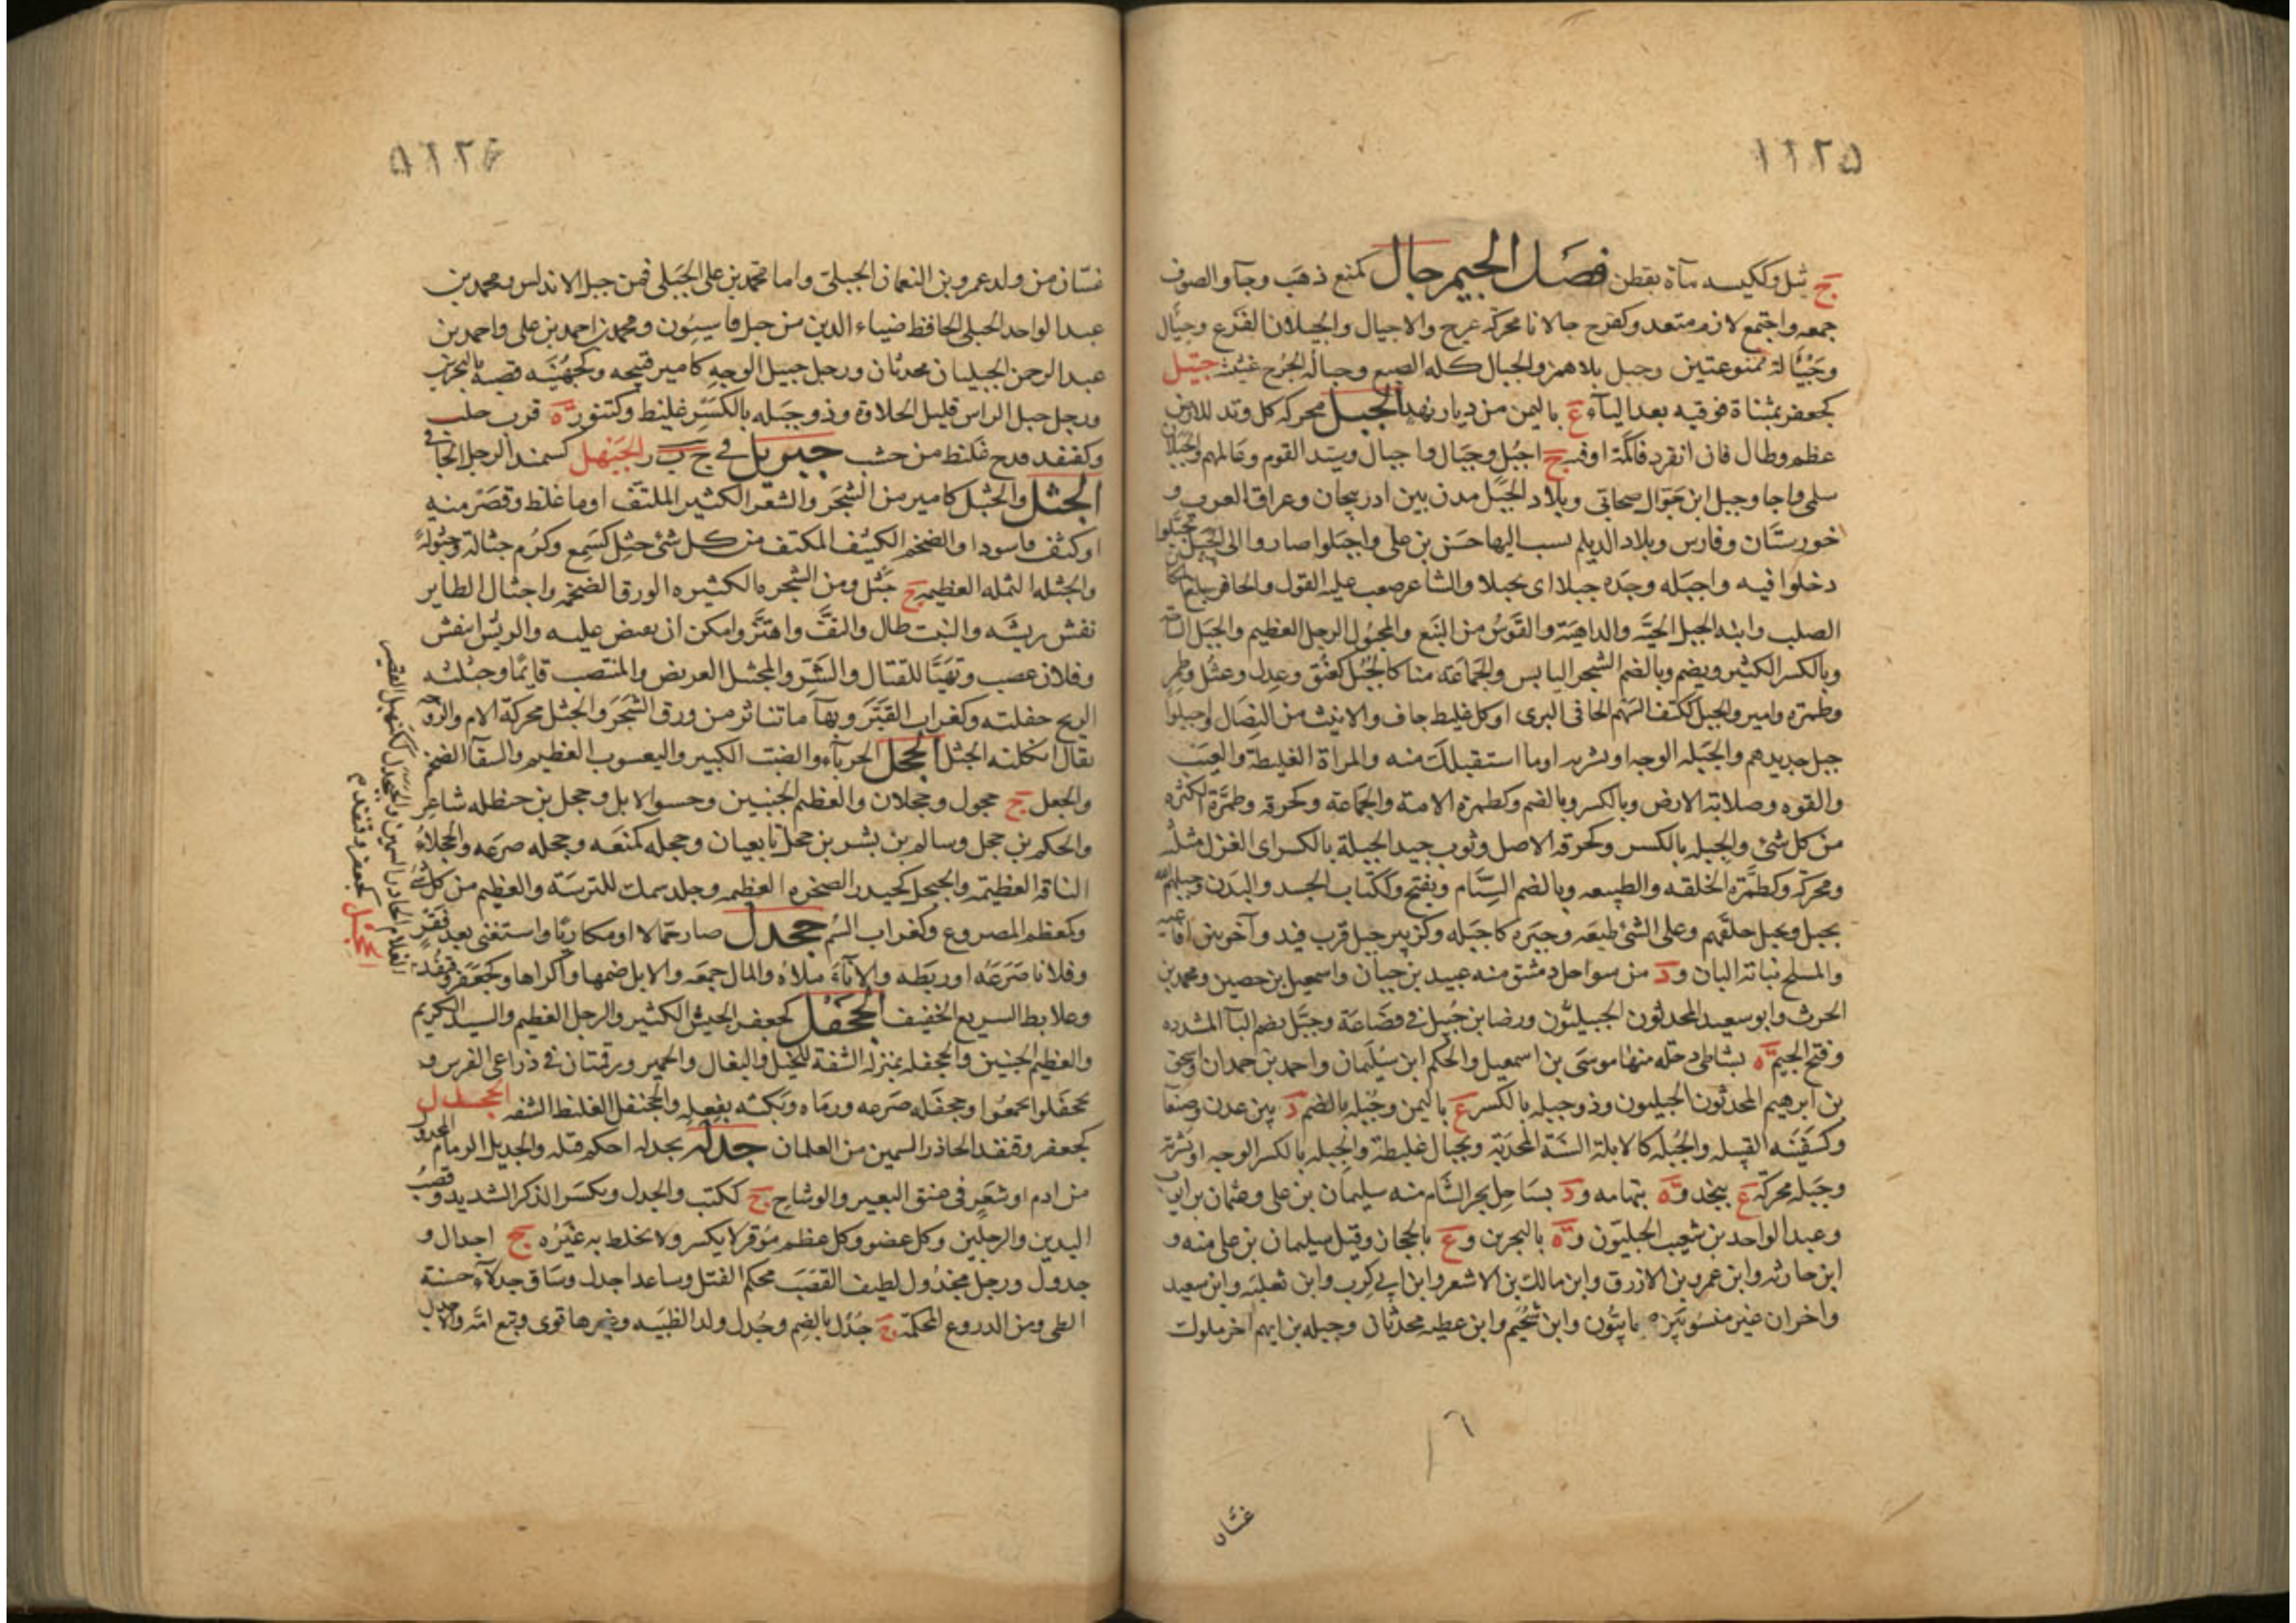 ١١٢٥
ج ثيل وككيسه مأة بقطن فصل الجيم جال كمنع ذهب وجآء والصوف
جمعه واجتمع لازم متعد وكفرح جالانا محركة عرج والاجيال والجيلان الفزع وجيأل
وجيألة ممنوعتين وجيل بلا همز والجيال كله الضبع وجيالة الجرح غثيثه جيتل
كجعفر بمثناة فوقيه بعد الياء ع باليمن من ديار نهد الجبل محركه كل وتد للارض
عظم وطال فان انفرد فاكمة او قنه ج اجبل وجبال واجبال وسيد القوم وعالمهم والجبلان
سلمى واجا وجبل ابن جوال صحابى وبلاد الجبل مدن بين ادربيجان وعراق العرب و
خورستان وفارس وبلاد الديلم نسب اليها حسن بن على واجبلوا صاروا الى الجبل وتجبلوا
دخلوا فيه واجبله وجده جبلا اى بخيلا والشاعر صعب عليه القول والحافر بلغ المكان
الصلب وابنه الجبل الحيّة والداهية والقوس من النبع والمجبول الرجل العظيم والجبل الساحة
وبالكسر الكثير ويضم وبالضم الشجر اليابس والجماعة منا كالجبل كعنق وعدل وعتل وطمر
وطمرة وامير والجبل ككتف السهم الجافى البرى او كل غليظ جاف والانيث من النصال واجبلوا
جبل حديدهم والجبله الوجه او بشرته او ما استقبلك منه والمراة الغليظة والعيب
والقوه وصلابة الارض وبالكسر وبالضم وكطمرة الامة والجماعة وكحزقه وطمرّة الكثرة
من كل شئ والجبله بالكسر وكحزقه الاصل وثوب جيد الجبلة بالكسر اى الغزل مثلثه
ومحركة وكطمّره الخلقه والطبيعه وبالضم السنام ويفتح وككتاب الجسد والبدن وجبلهم الله
يجبل ويجبل خلقهم وعلى الشئ طبعه وجبره كاجبله وكزبير جبل قرب فيد وآخر بين افاعيه
والمسلح نباته البان ود من سواحل دمشق منه عبيد بن حبان واسمعيل بن حصين ومحمد بن
الحرث وابو سعيد المحدثون الجبيليّون ورضا بن جبيل فى قضاعة وجبّل بضم البآ المشدده
وفتح الجيم ة بشاطى دجله منها موسى بن اسمعيل والحكم ابن سليمان واحمد بن حمدان واسحق
بن ابرهيم المحدثون الجبليون وذو جبله بالكسر ع باليمن وجبله بالضم د بين عدن وصنعا
وكسفينه القبيله والجبلة كالابلة السنة المجدبة وبجبال غليظة والجبله بالكسر الوجه او بشرته
وجبله محركة ع بنجد وة بتهامه ود بساحل بحر الشام منه سليمان بن على وعثمان بن ايوب
وعبد الواحد بن شعيب الجبليّون وة بالبحرين وع بالحجاز وقيل سليمان بن على منه و
ابن حارثه وابن عمرو بن الازرق وابن مالك بن الاشعر وابن ابى كرب وابن ثعلبه وابن سعيد
واخران غير منسوبين صحابيّون وابن سحيم وابن عطيه محدثان وجبله بن ايهم اخر ملوك
غسّان
١١٢٦
غسّان من ولد عمرو بن النعمان الجبلىّ واما محمد بن على الجبلى فمن جبل الاندلس ومحمد بن
عبد الواحد الجبلى الحافظ ضياء الدين من جبل قاسيون ومحمد بن احمد بن على واحمد بن
عبد الرحمن الجبليان محدثان ورجل جبيل الوجه كامير قبيحه وكجهينه قصبه بالبحرين
ورجل جبل الراس قليل الحلاوة وذو جبله بالكسر غليظ وكتنور ة قرب حلب
وكقنفد قدح غليظ من خشب جبريل فى ج ب ر الجنبهل كسمند الرجل الجافى
الجثل والجثيل كامير من الشجر والشعر الكثير الملتف او ما غلظ وقصر منه
او كثف واسود او الضخم الكثيف المكتف من كل شئ جثل كسمع وكرم جثالة وجثولة
والجثله النمله العظيمه ج جثل ومن الشجره الكثيره الورق الضخمه واجثال الطاير
نفش ريشه والنبت طال والتف واهتز وامكن ان يقبض عليه والريش انتفش
وفلان غضب وتهيّا للقتال والشر والمجثل العريض والمنتصب قايمًا وجثلته
الريح جفلته وكغراب القبّر وبهآ ما تناثر من ورق الشجر والجثل محركة الام والزوجه
يقال ثكلته الجثل الجحل الحربآء والضب الكبير واليعسوب العظيم والسقآ الضخم
والجعل ج جحول وجحلان والعظيم الجنبين وحسو الابل وجحل بن حنظله شاعر
والحكم بن جحل وسالم بن بشر بن جحل تابعيان وجحله كمنعه وجحله صرعه والجحلاء
الناقه العظيمه والجيحل كحيدر الصخره العظيمه وجلد سمك للترسة والعظيم من كل شئ
وكعظم المصروع وكغراب السم جحدل صار حمّالا او مكاريًا واستغنى بعد فقر
وفلانا صرعه او ربطه والانآء ملأه والمال جمعه والابل ضمها واكراها وكجعفر وقنفد
وعلابط السريع الخفيف الجحفل كجعفر الجيش الكثير والرجل العظيم والسيد الكريم
والعظيم الجنبين والجحفله بمنزلة الشفة للخيل والبغال والحمير ورقمتان فى ذراعى الفرس و
تجحفلوا تجمعوا وجحفله صرعه ورماه وبكته بفعله والجحنفل الغليظ الشفه الجخدل
كجعفر وقنفد الحادر السمين من الغلمان جدله يجدله احكم فتله والجديل الزمام المجدول
من ادم او شعر فى عنق البعير والوشاح ج ككتب والجدل ويكسر الذكر الشديد وقصب
اليدين والرجلين وكل عضو وكل عظم موقر لا يكسر ولا يخلط به غيره ج اجدال و
جدول ورجل مجدول لطيف القصب محكم الفتل وساعد اجدل وساق جدلآء حسنة
الطى ومن الدروع المحكمة ج جدل بالضم وجدل ولد الظبيه وغيرها قوى وتبع امّه والاجدل
الغلام الحادر السمين
كجعفر وقنفد م